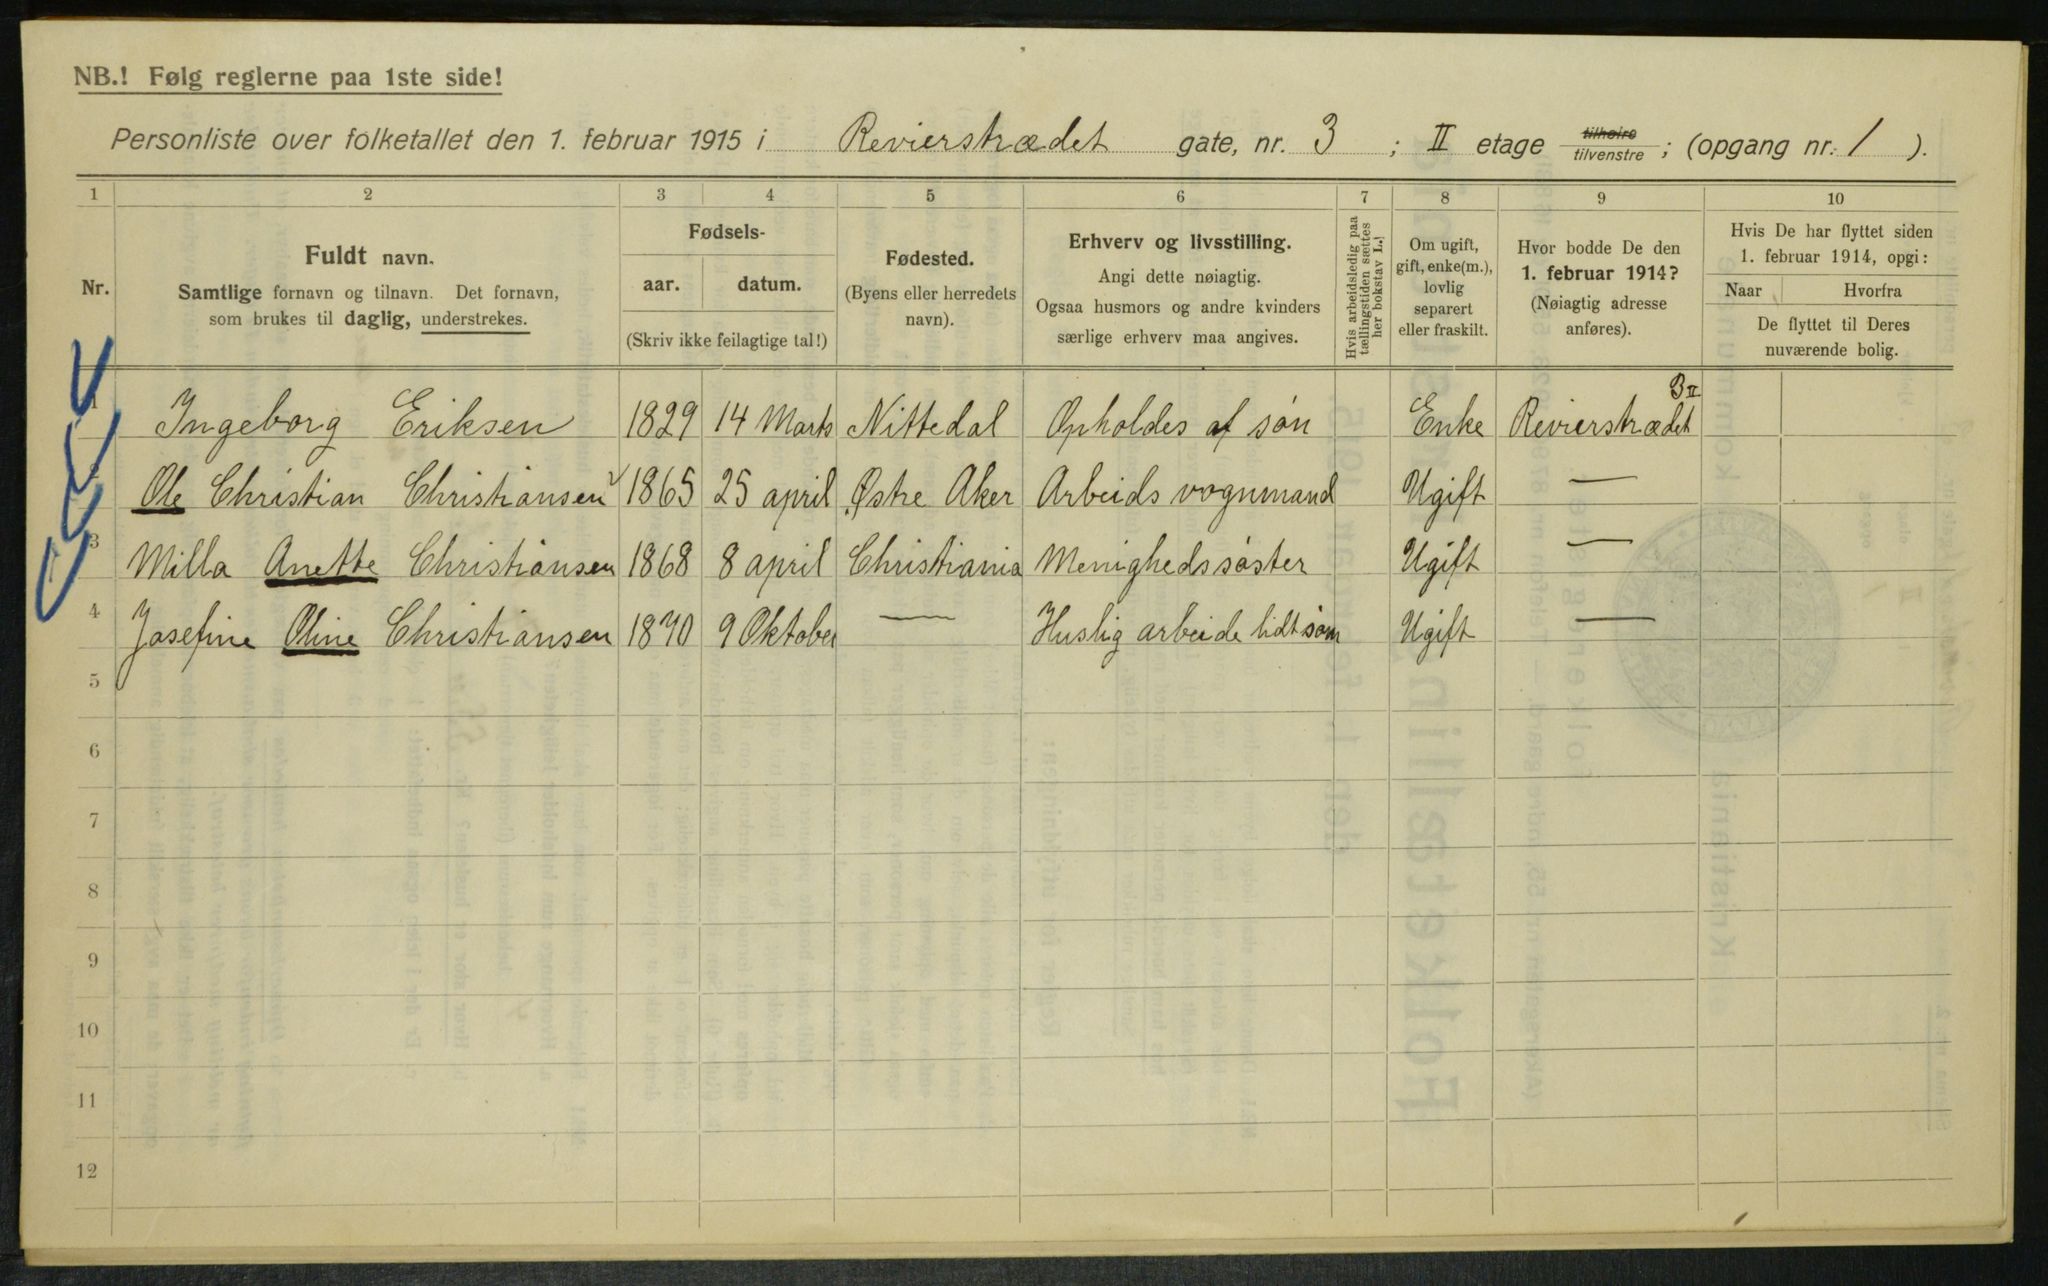 NB.! Følg reglerne paa 1ste side!
Personliste over folketallet den 1. februar 1915 i Revierstrædet gate, nr. 3 ; II etage tilhøire tilvenstre ; (opgang nr. 1 ).
1 2 3 4 5 6 7 8 9 10
Nr.
Fuldt navn.
Samtlige fornavn og tilnavn. Det fornavn,
som brukes til daglig, understrekes.
Fødsels-
aar. datum.
(Skriv ikke feilagtige tal!)
Fødested.
(Byens eller herredets
navn).
Erhverv og livsstilling.
Angi dette nøiagtig.
Ogsaa husmors og andre kvinders
særlige erhverv maa angives.
Hvis arbeidsledig paa
tællingstiden sættes
her bokstav L.!
Om ugift,
gift, enke(m.),
lovlig
separert
eller fraskilt.
Hvor bodde De den
1. februar 1914?
(Nøiagtig adresse
anføres).
Hvis De har flyttet siden
1. februar 1914, opgi:
Naar Hvorfra
De flyttet til Deres
nuværende bolig.
1 Ingeborg Eriksen 1829 14 Marts Nittedal Opholdes af søn Enke Revierstrædet 3 II
2 Ole Christian Christiansen 1865 25 april Østre Aker Arbeids vognmand Ugift —
3 Milla Anette Christiansen 1868 8 april Christiania Menighedssøster Ugift —
4 Josefine Oline Christiansen 1870 9 Oktober — Huslig arbeide lidt søm Ugift —
5
6
7
8
9
10
11
12